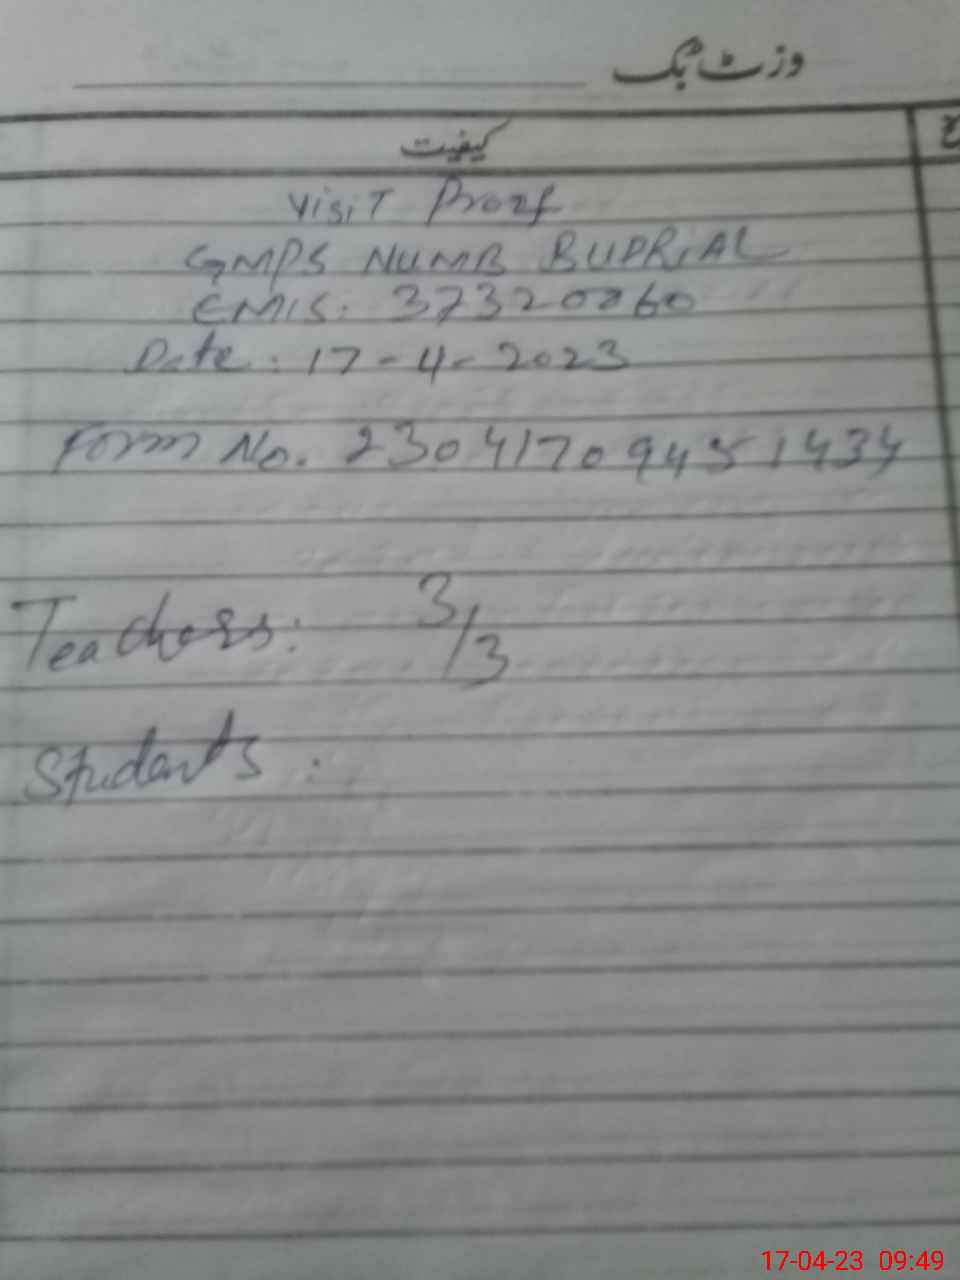 وزٹ بک
کیفیت
Visit Proof
GMPS NUMB BUPRIAL
EMIS. 37320060
Date: 17-4-2023
Form No. 23041709451434
Teachers: 3/3
Students:
17-04-23 09:49